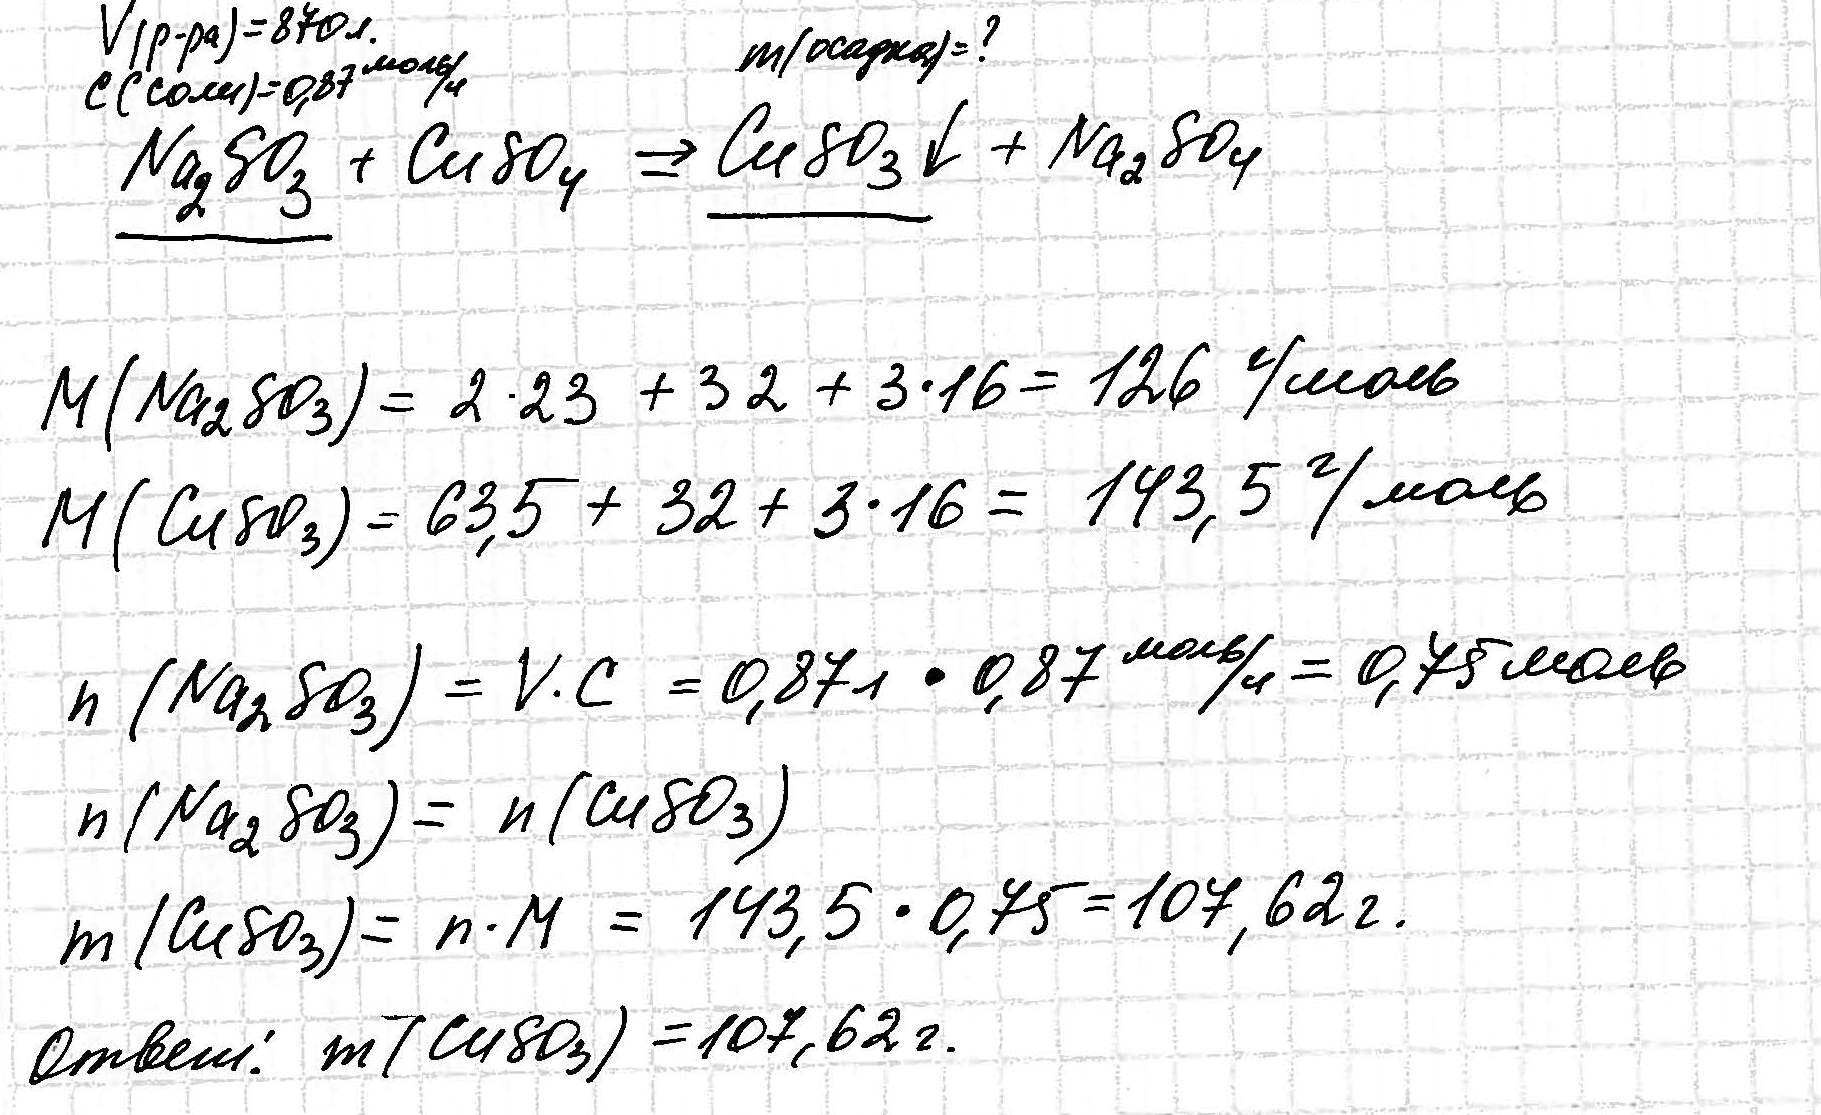 V(р-ра)=870л.
C(соли)=0,87 моль/л
m(осадка)=?
Na₂SO₃ + CuSO₄ ⇒ CuSO₃↓ + Na₂SO₄
M(Na₂SO₃) = 2·23 + 32 + 3·16 = 126 г/моль
M(CuSO₃) = 63,5 + 32 + 3·16 = 143,5 г/моль
n(Na₂SO₃) = V·C = 0,87л · 0,87 моль/л = 0,75 моль
n(Na₂SO₃) = n(CuSO₃)
m(CuSO₃) = n·M = 143,5 · 0,75 = 107,62 г.
Ответ: m(CuSO₃) = 107,62 г.